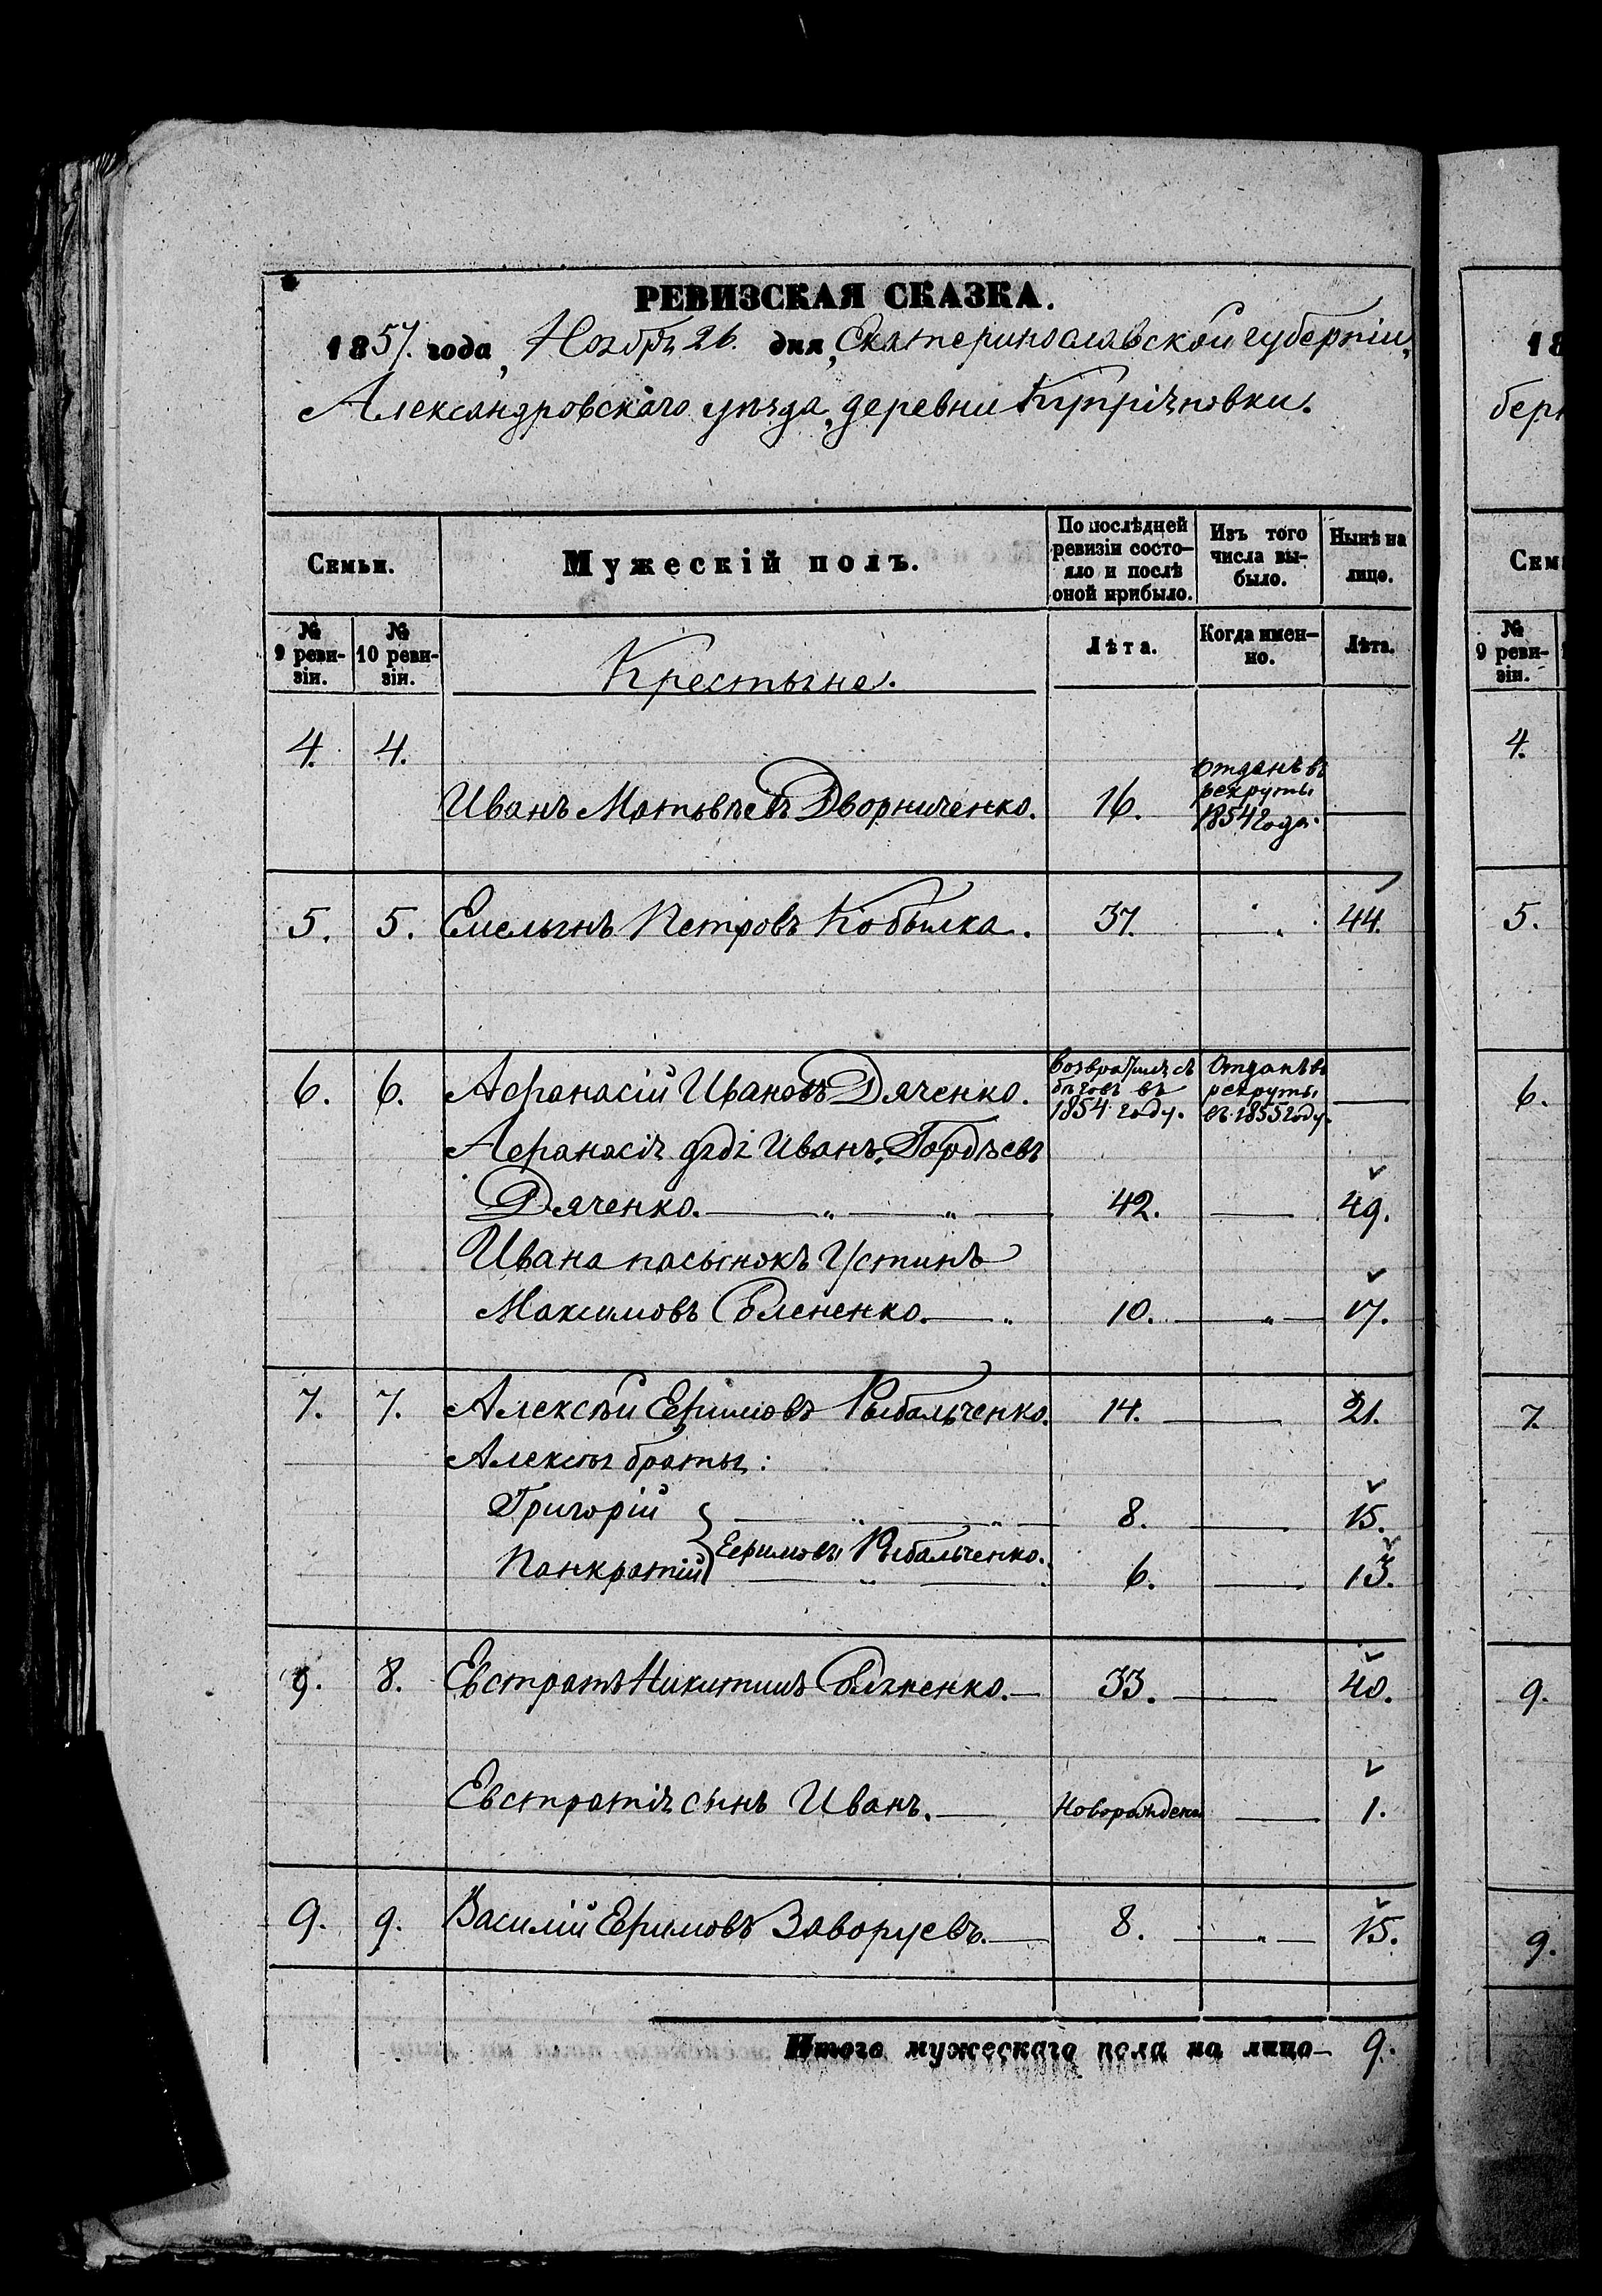 РЕВИЗСКАЯ СКАЗКА.
1857. года, Ноября 26. дня, Екатеринославской губерніи,
Александровскаго уѣзда, деревни
Семьи. Мужескій полъ. По послѣдней ревизіи состояло и послѣ оной прибыло. Изъ того числа выбыло. Нынѣ на лицо.
№ 9 ревизіи. № 10 ревизіи. Крестьяне. Лѣта. Когда именно. Лѣта.
4. 4. Иванъ Матвѣевъ Дворниченко. 16. Отданъ въ рекруты 1854 года. —
5. 5. Емельянъ Петровъ Кобылка. 37. — 44.
6. 6. Афанасій Ивановъ Дяченко. Возвратился съ бѣговъ въ 1854 году. Отданъ въ рекруты въ 1855 году. —
Афанасія дядя Иванъ Гордѣевъ
Дяченко. — „ — „ — 42. — 49.
Ивана пасынокъ Устинъ
Максимовъ — „ 10. — „ — 17.
7. 7. Алексѣй Ефимовъ Рыбальченко. 14. — 21.
Алексѣя братья:
Григорій — „ — „ — 8. — 15.
Ефимовы Рыбальченко.
Панкратій — „ — 6. — 13.
9. 8. Евстратъ Никитинъ — 33. — 40.
Евстратія сынъ Иванъ. — Новорожденъ — 1.
9. 9. Василій Ефимовъ Заворуевъ. — 8. — „ — 15.
Итого мужескаго пола на лицо — 9.
18
бер
Сем
№ 9 ревизіи.
4.
5.
6.
7.
9.
9.